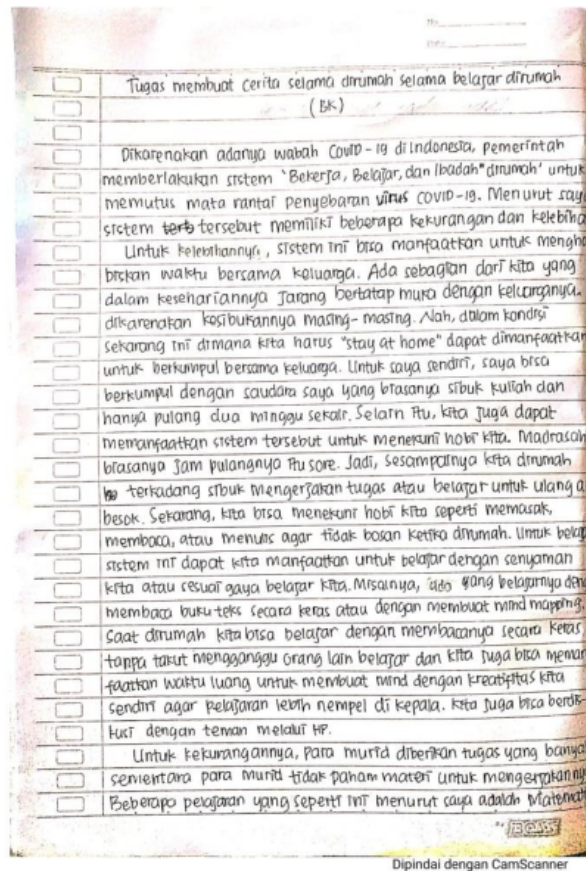 No.
Date
Tugas membuat cerita selama dirumah selama belajar dirumah
(BK)
Dikarenakan adanya wabah Covid-19 di Indonesia, pemerintah
memberlakukan sistem 'Bekerja, Belajar, dan Ibadah" dirumah' untuk
memutus mata rantai penyebaran virus COVID-19. Menurut say
sistem terb tersebut memiliki beberapa kekurangan dan kelebiha
Untuk kelebihannya, sistem ini bisa manfaatkan untuk mengha
biskan waktu bersama keluarga. Ada sebagian dari kita yang
dalam kesehariannya jarang bertatap muka dengan keluarganya.
dikarenakan kesibukannya masing-masing. Nah, dalam kondisi
sekarang ini dimana kita harus "stay at home" dapat dimanfaatkan
untuk berkumpul bersama keluarga. Untuk saya sendiri, saya bisa
berkumpul dengan saudara saya yang biasanya sibuk kuliah dan
hanya pulang dua minggu sekali. Selain itu, kita juga dapat
memanfaatkan sistem tersebut untuk menekuni hobi kita. Madrasah
biasanya jam pulangnya itu sore. Jadi, sesampainya kita dirumah
terkadang sibuk mengerjakan tugas atau belajar untuk ulang a
besok. Sekarang, kita bisa menekuni hobi kita seperti memasak,
membaca, atau menulis agar tidak bosan ketika dirumah. Untuk belaj
sistem ini dapat kita manfaatkan untuk belajar dengan senyaman
kita atau sesuai gaya belajar kita. Misalnya, ada yang belajarnya den
membaca buku teks secara keras atau dengan membuat mind mapping.
Saat dirumah kita bisa belajar dengan membacanya secara keras
tanpa takut mengganggu orang lain belajar dan kita juga bisa meman
faatkan waktu luang untuk membuat mind dengan kreatifitas kita
sendiri agar pelajaran lebih nempel di kepala. Kita juga bisa berdis
kusi dengan teman melalui HP.
Untuk kekurangannya, para murid diberikan tugas yang banya
sementara para murid tidak paham materi untuk mengerjakanny
Beberapa pelajaran yang seperti ini menurut saya adalah Matemati
BOSS
Dipindai dengan CamScanner